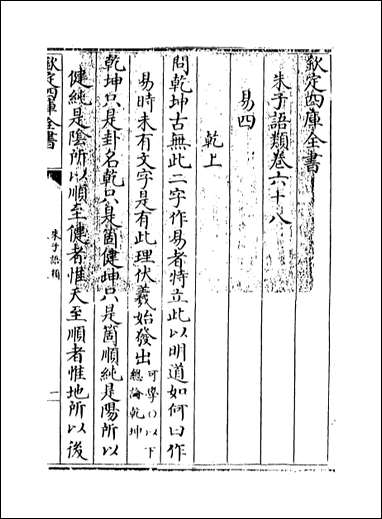 欽定四庫全書
朱子語類卷六十八
易四
乾上
問乾坤古無此二字作易者特立此以明道如何曰作
易時未有文字是有此理伏羲始發出可學○以下總論乾坤
乾坤只是卦名乾只是箇健坤只是箇順純是陽所以
健純是陰所以順至健者惟天至順者惟地所以後
欽定四庫全書
朱子語類
一